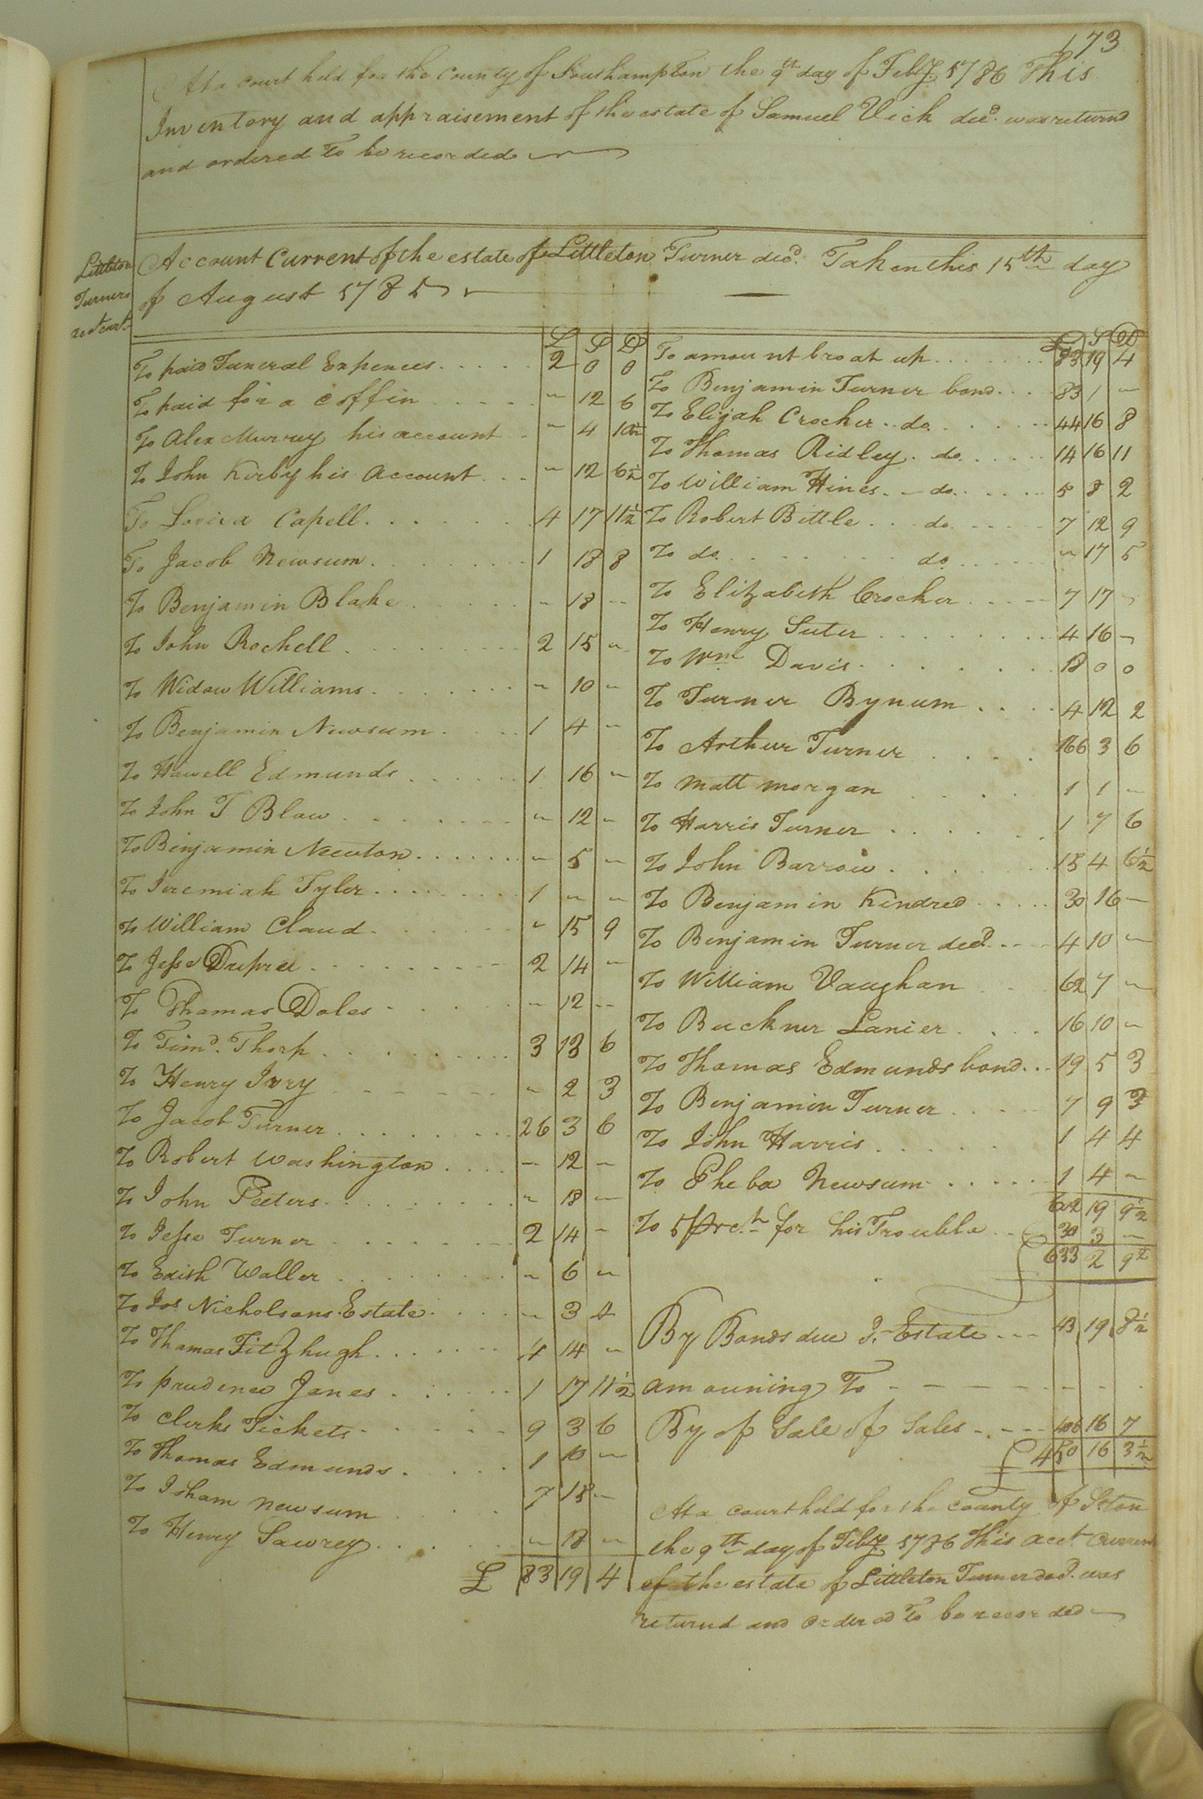 173
At a court held for the County of Southampton the 9th day of Feby 1786 This
Inventory and appraisement of the estate of Samuel Vick decd. was returnd
and ordered To be recorded
Littleton
Turners
Account Current of the estate of Littleton Turner decd. Taken this 15th day
of August 1785
£ S D
To paid Funeral Expences 2 0 0
To paid for a Coffin " 12 6
To Alex Murrey his account " 4 10½
To John Kirby his Account " 12 6½
To Capell 4 17 11½
To Jacob Newsum 1 18 8
To Benjamin Blake - 18 --
To John Rochell 2 15 "
To Widow Williams " 10 "
To Benjamin Newsum 1 4 "
To Howell Edmunds 1 16 "
To John T Blow " 12 "
To Benjamin Newton " 5 "
To Jeremiah Tyler 1 " "
To William Claud " 15 9
To Jesse Dupree 2 14 "
To Thomas Doles - 12 --
To Timo. Thorp 3 13 6
To Henry Ivry " 2 3
To Jacob Turner 26 3 6
To Robert Washington - 12 -
To John Peeters " 18 -
To Jesse Turner 2 14 "
To Edith Waller " 6 "
To Jos Nicholsons Estate " 3 4
To Thomas FitZhugh 4 14 "
To prudence Jones 1 17 11½
To Clerks Tickets 9 3 6
To Thomas Edmunds 1 10 "
To Isham Newsum 7 15 -
To Henry Sawrey " 18 "
£ 83 19 4
£ S D
To amount broat up 83 19 4
To Benjamin Turner bond 83 1 -
To Elijah Crocker do 44 16 8
To Thomas Ridley do 14 16 11
To William Hines do 5 8 2
To Robert Bittle do 7 12 9
To do do " 17 5
To Elizabeth Crocker 7 17 -
To Henry Suter 4 16 -
To Wm Davis 18 0 0
To Turner Bynum 4 12 2
To Arthur Turner 166 3 6
To Matt Morgan 1 1 -
To Harris Turner 1 7 6
To John Barrow 15 4 6½
To Benjamin Kindred 30 16 -
To Benjamin Turner decd. 4 10 -
To William Vaughan 62 7 -
To Buckner Lanier 16 10 -
To Thomas Edmunds bond 19 5 3
To Benjamin Turner 7 9 3
To John Harris 1 4 4
To Pheba Newsum 1 4 -
602 19 9½
To 5 prct. for his Trouble 30 3 -
£ 633 2 9½
By Bonds due Estate 43 19 8½
amouning To
By of Sale of Sales 406 16 7
£ 450 16 3½
At a court held for the county of Ston
the 9th day of Feby 1786 This acct. Current
of the estate of Littleton Turner decd. was
returnd and ordered To be recorded